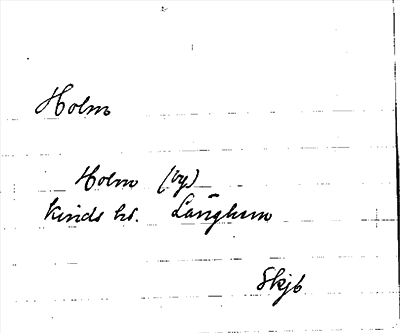 Holm
Holm (by)
Kinds hd. Långhem
Skjb